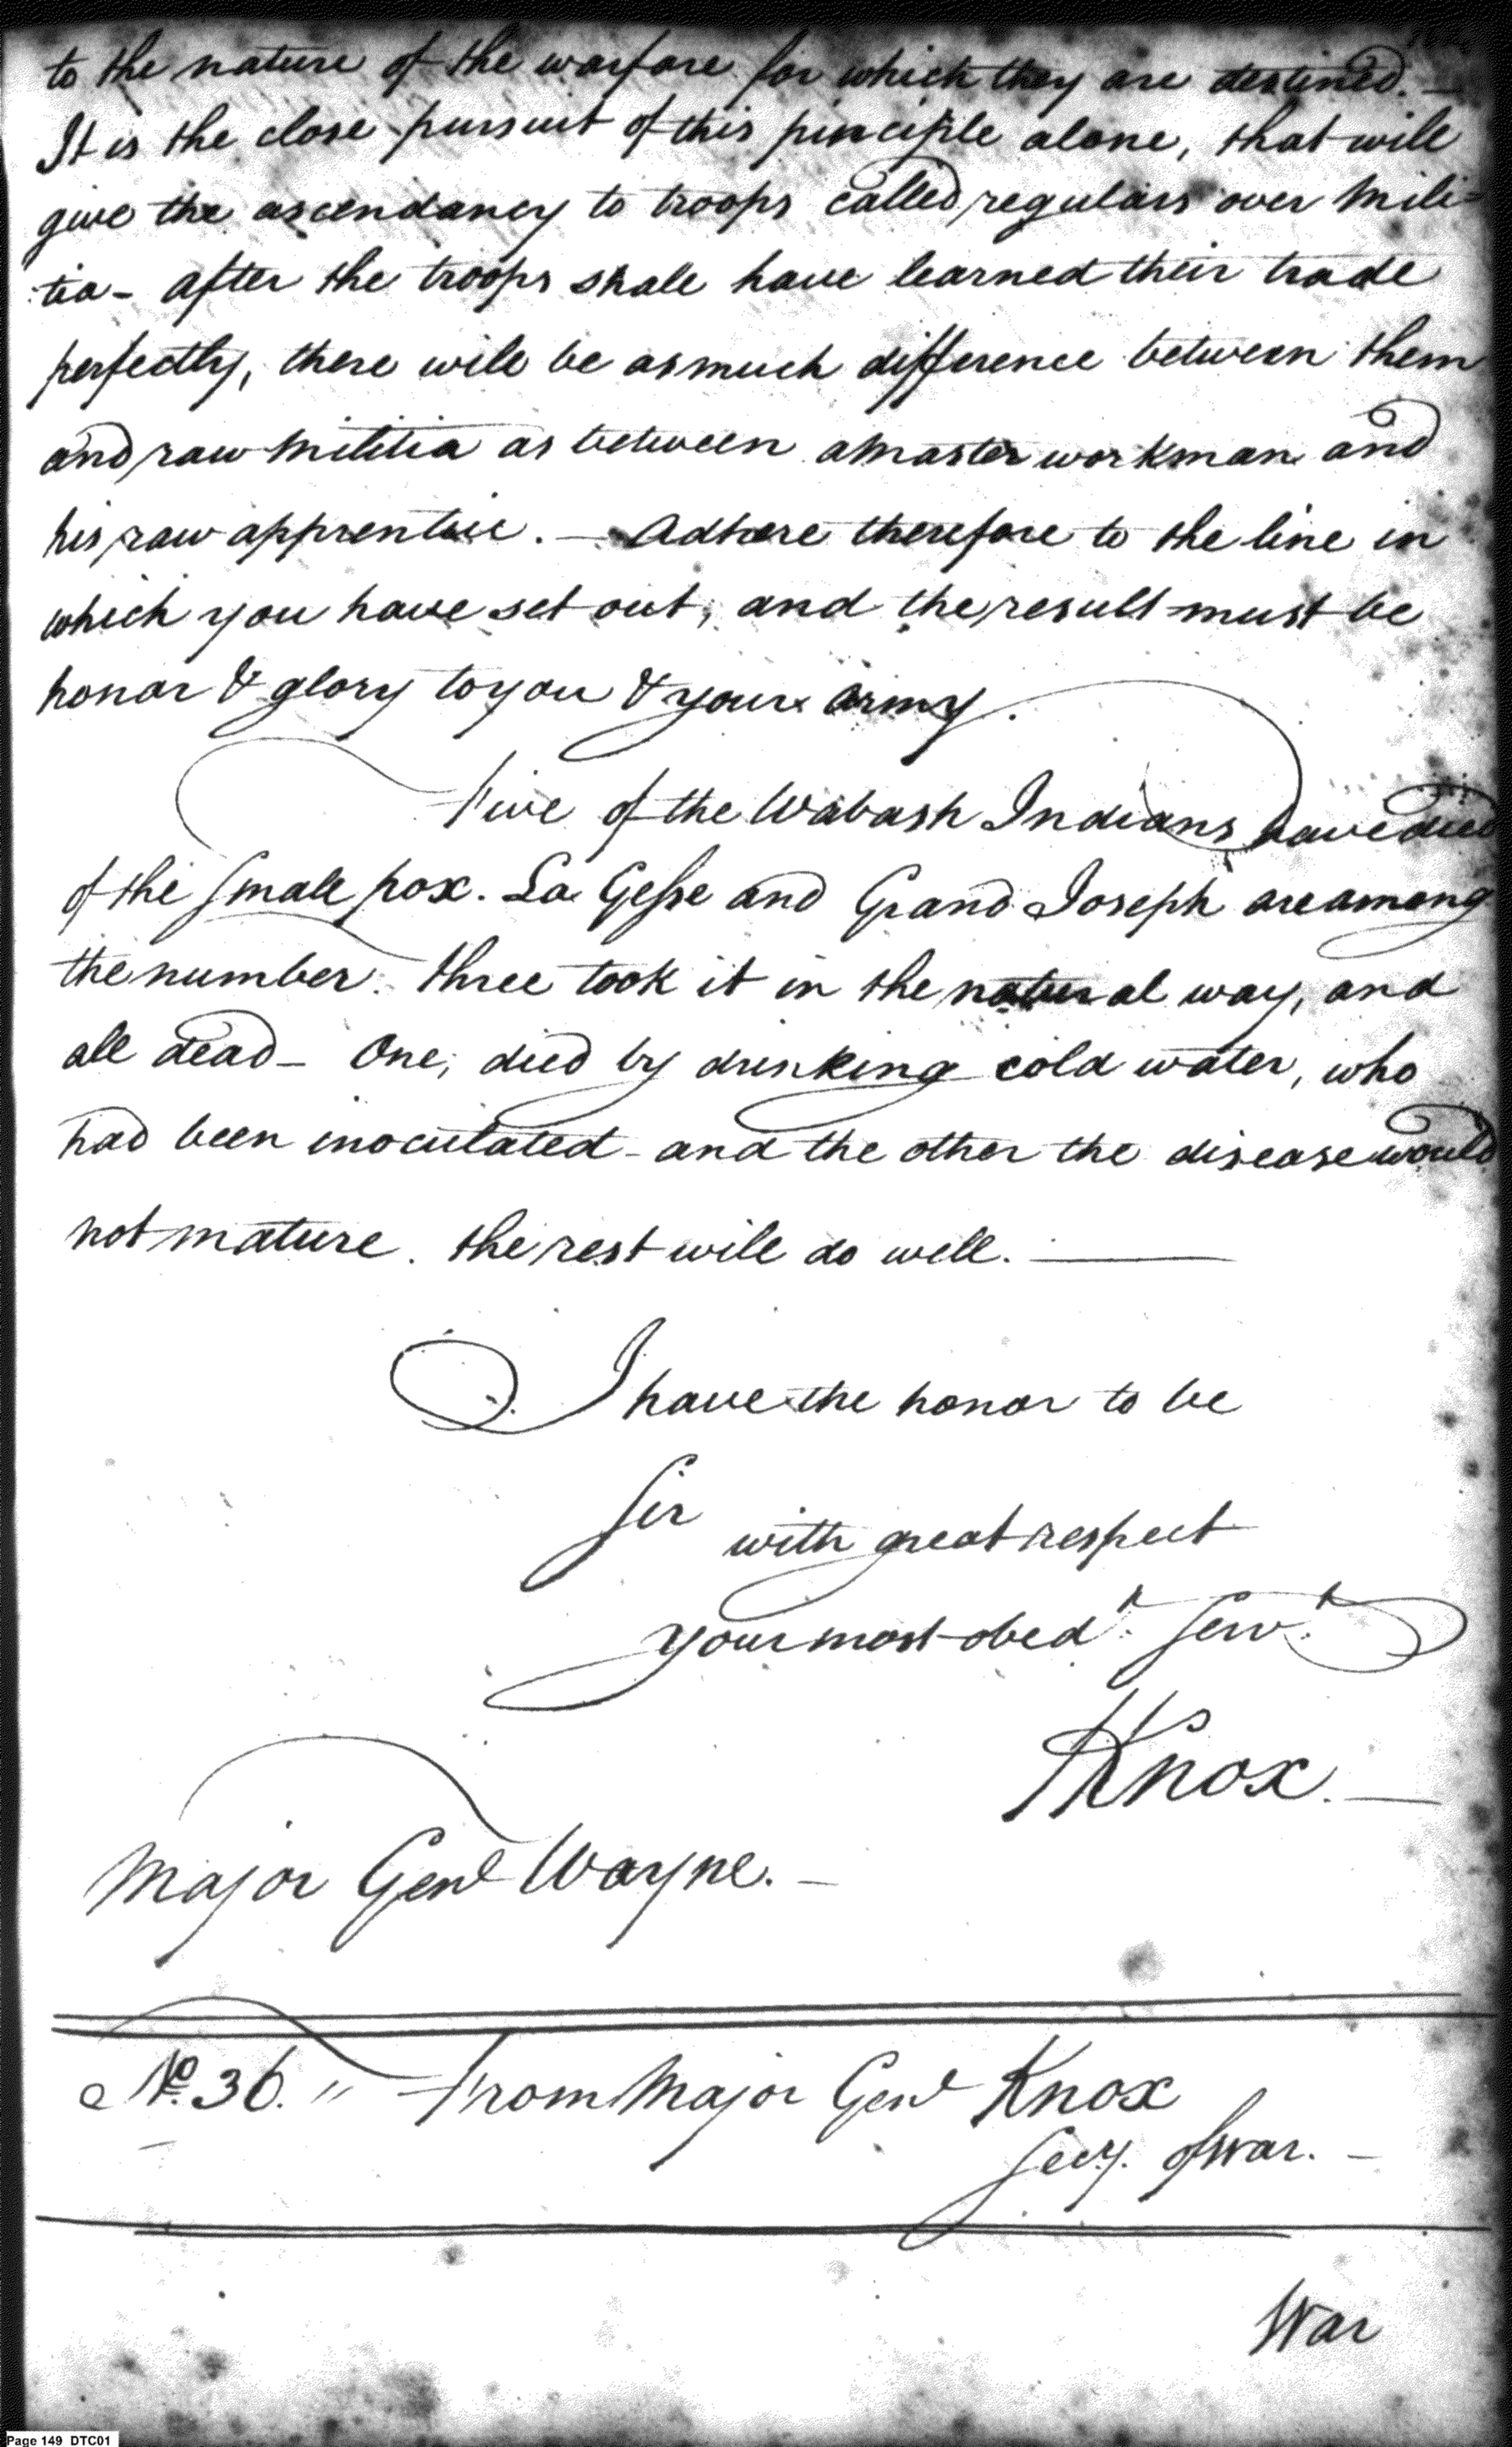 to the nature of the warfare for which they are destined. —
It is the close pursuit of this pinciple alone, that will
give the ascendancy to troops called regulars over mili=
tia - after the troops shall have learned their trade
perfectly, there will be as much difference between them
and raw militia as between a master workman and
his raw apprentice. — Adhere therefore to the line in
which you have set out, and the result must be
honor & glory to you & your army.
Five of the Wabash Indians have died
of the small pox. La Gesse and Grand Joseph are among
the number. three took it in the natural way, and
all dead - One, died by drinking cold water, who
had been inoculated - and the other the disease would
not mature. the rest will do well. —
I have the honor to be
Sir
with great respect
your most obedt. Servt.
HKnox. —
Major Genl Wayne. —
No. 36. " From Major Genl Knox
Secy. of War. —
War
Page 149 DTC01